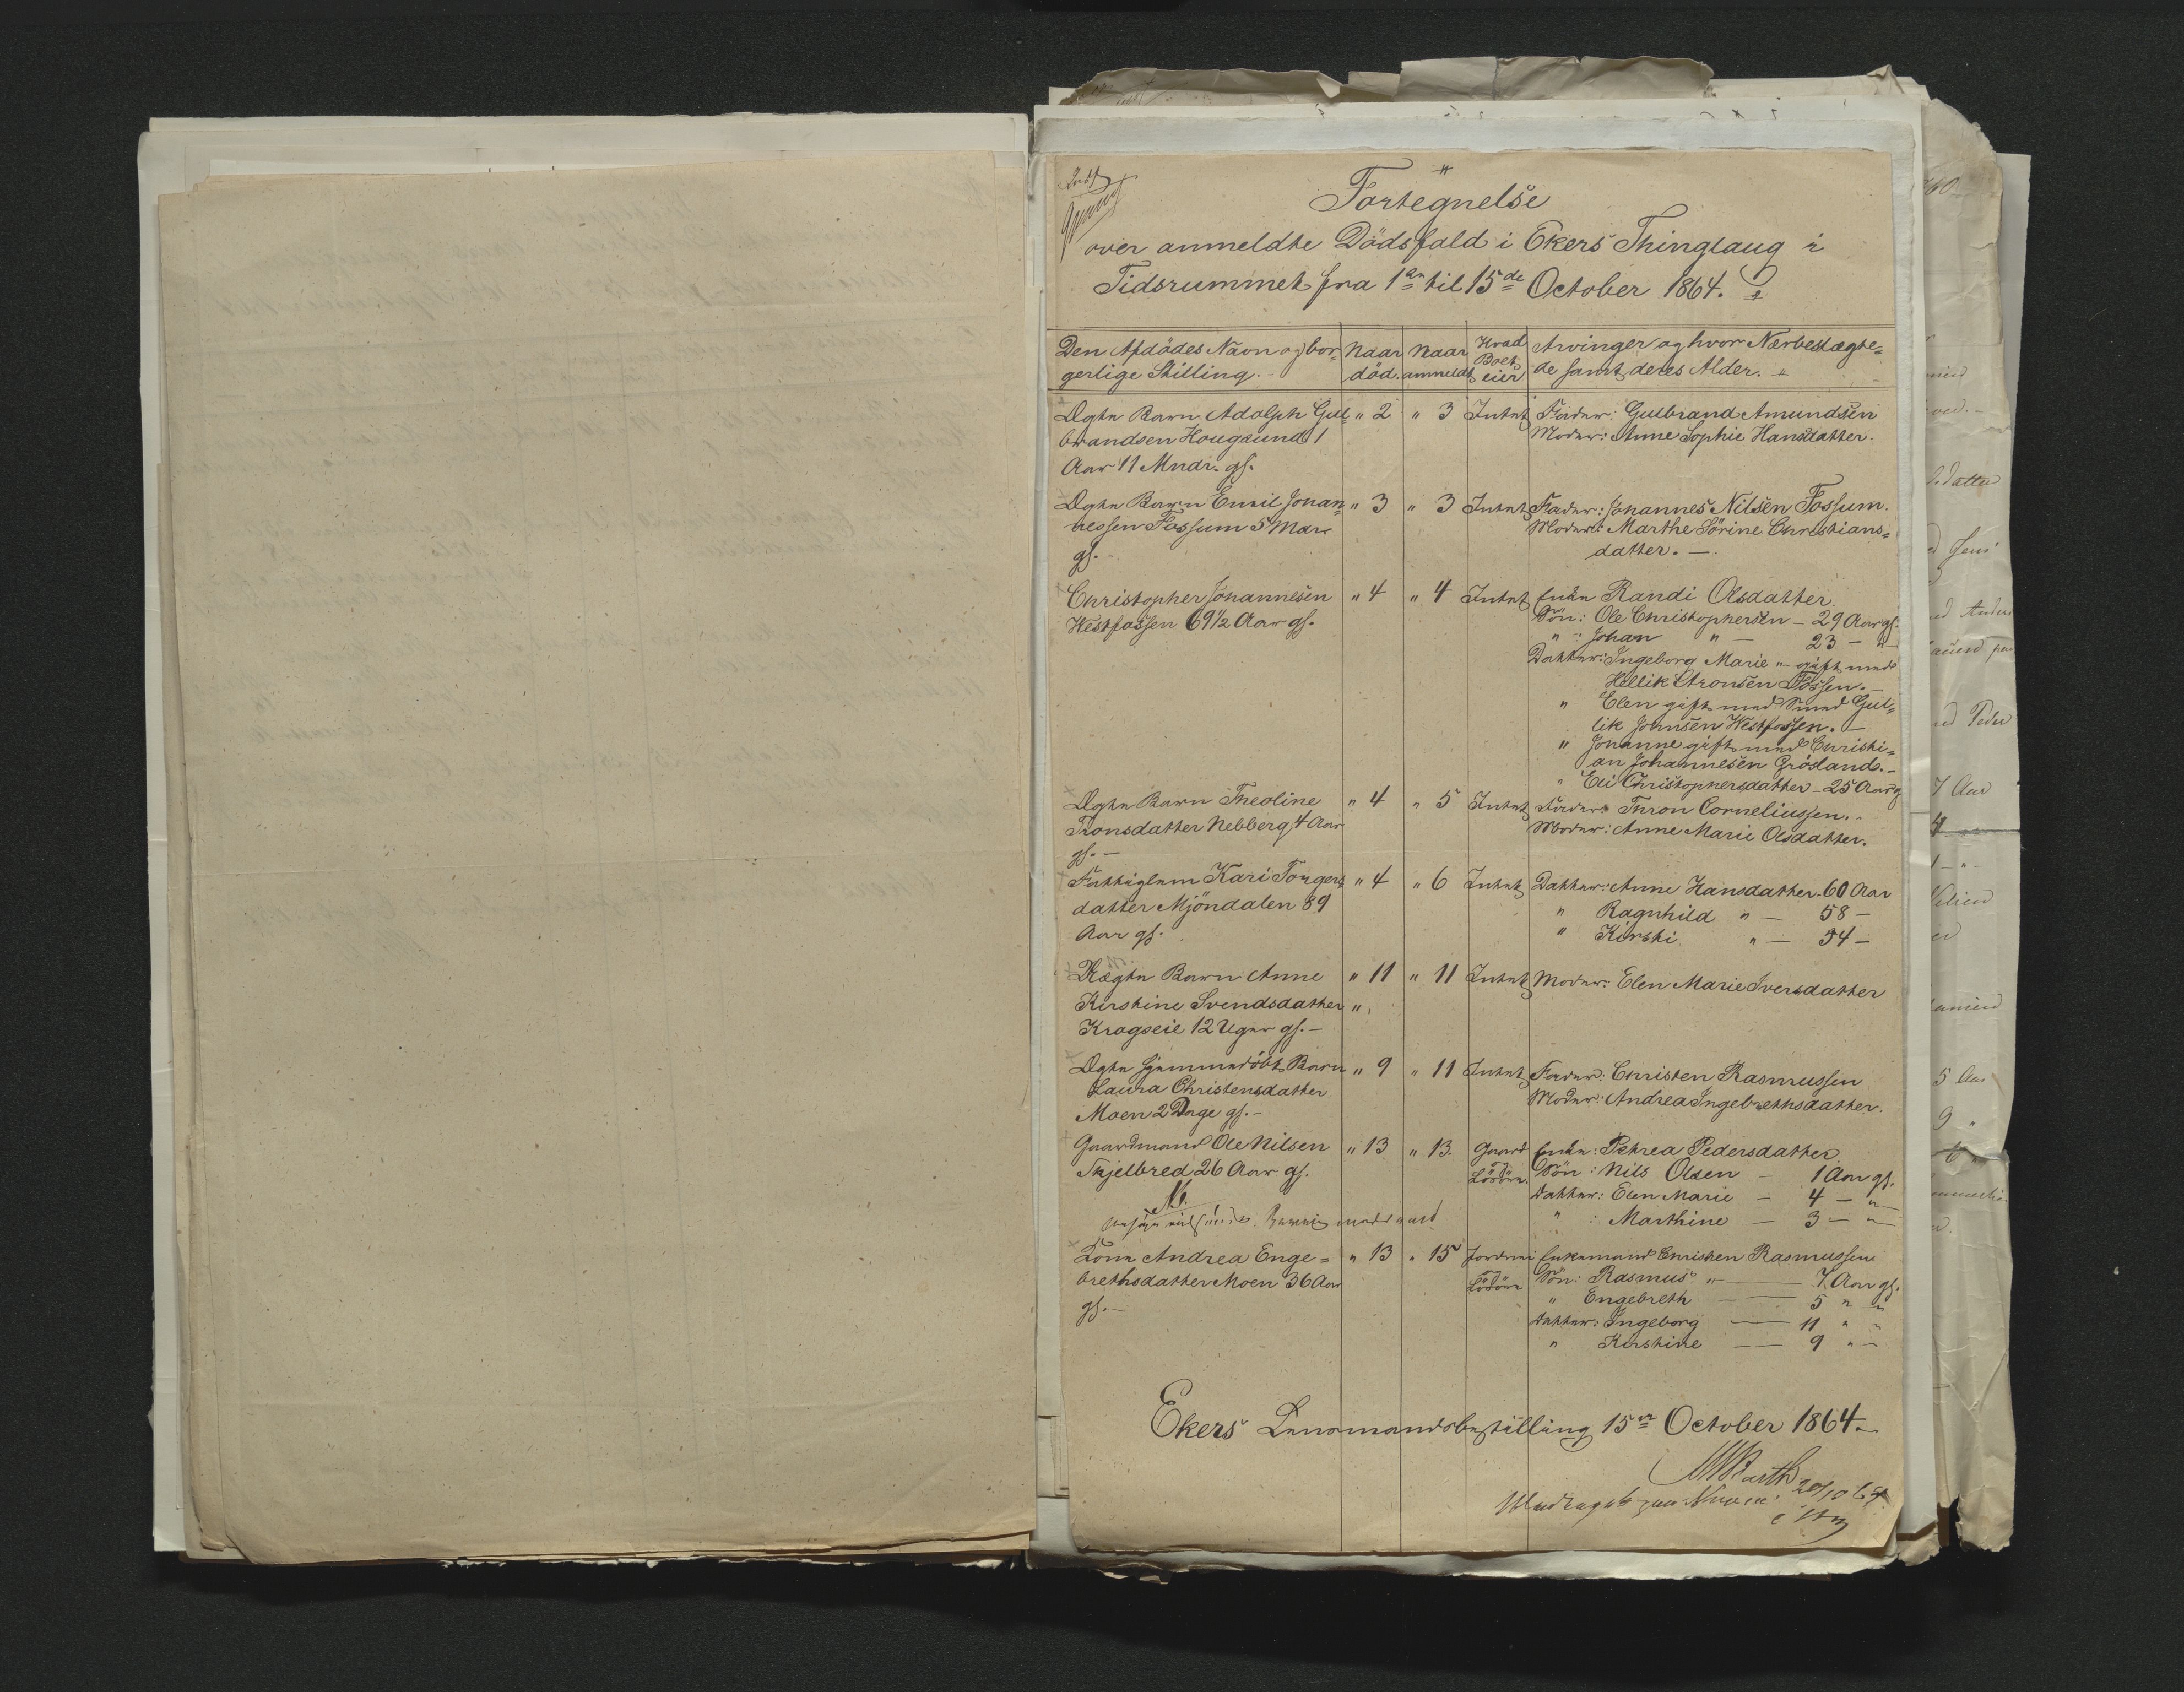 Fortegnelse
over anmeldte Dödsfald i Ekers Thinglaug i
Tidsrummet fra 1ste til 15de October 1864.
Den Afdödes Navn og bor-
gerlige Stilling.
Naar
död.
Naar
anmeldt
Hvad
Boet
eier
Arvinger og hvor Nærbeslægte-
de samt deres Alder.
Ægte Barn Adolph Gul- " 2 " 3 Intet Fader: Gulbrand Amundsen
brandsen Hougsund 1 Moder: Anne Sophie Hansdatter.
Aar 11 Mndr. gl.
Ægte Barn Emil Johan- " 3 " 3 Intet Fader: Johannes Nilsen Fossum.
nessen Fossum 5 Mdr. Moder: Marthe Sörine Christians-
gl. - datter. -
Christopher Johannesen " 4 " 4 Intet Enke Randi Olsdatter
Westfossen 69 1/2 Aar gl. Sön: Ole Christophersen - 29 Aar gl.
" : Johan " - 23 - "
Datter: Ingeborg Marie " gift med
Hellik Aronsen Fossen. -
" Elen gift med Smed Gul-
lik Johnsen Westfossen. -
" Johanne gift med Christi-
an Johannesen Grösland. -
" Eli Christophersdatter - 25 Aar g
Ægte Barn Theoline " 4 " 5 Intet Fader: Thron Corneliussen. -
Tronsdatter Nebberg 4 Aar Moder: Anne Marie Olsdatter.
gl. -
Fattiglem Kari Torgers- " 4 " 6 Intet Datter: Anne Hansdatter 60 Aar
datter Mjöndalen 89 " Ragnhild " - 58 -
Aar gl. " Kirsti " - 54 -
Uægte Barn Anne " 11 " 11 Intet Moder: Elen Marie Iversdatter
Kirstine Svendsdatter "
Kragseie 12 Uger gl. -
Ægte hjemmedöbt Barn " 9 " 11 Intet Fader: Christen Rasmussen
Laura Christensdatter Moder: Andrea Ingebrethsdatter.
Moen 2 Dage gl. -
Gaardmand Ole Nilsen " 13 " 13. Gaard Enke: Petrea Pedersdatter
Skjelbred 26 Aar gl. og Sön: Nils Olsen - 1 Aar gl.
Lösöre. Datter: Elen Marie - 4 - "
" : Marthine - 3 - "
Kone Andrea Enge- " 13 " 15 Jordeiei Enkemand Christen Rasmussen
brethsdatter Moen 36 Aar og Sön: Rasmus " - 7 Aar gl.
gl. - Lösöre " Engebreth - 5 " "
Datter: Ingeborg - 11 " "
" Kirstine - 9 " -
Ekers Lensmandsbestilling 15de October 1864.
Barth
20/10 64